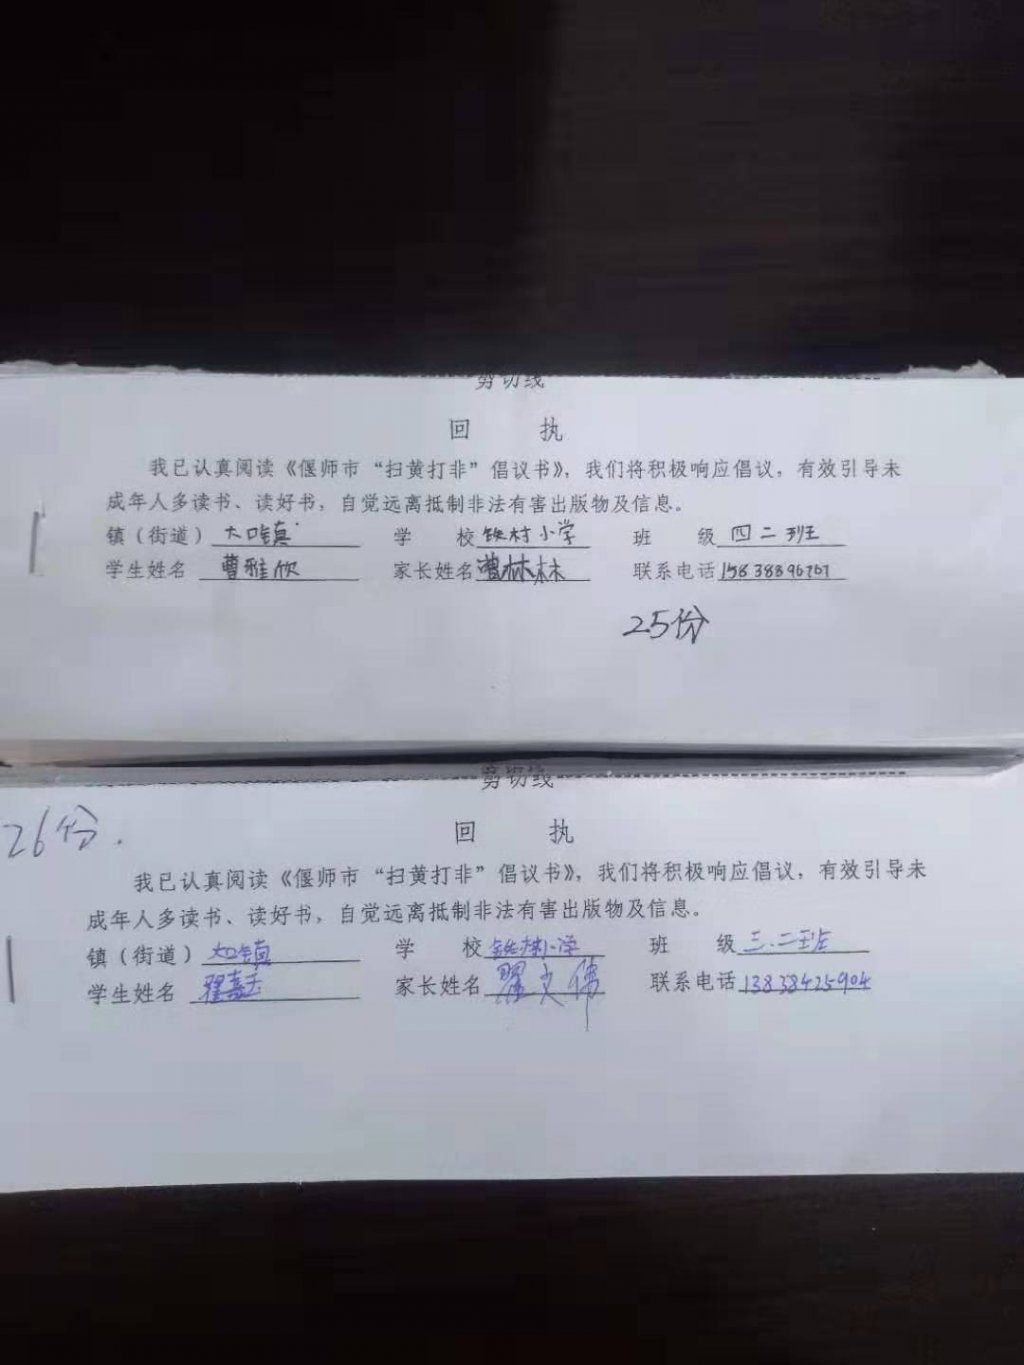 剪切线
回 执
我已认真阅读《偃师市“扫黄打非”倡议书》，我们将积极响应倡议，有效引导未
成年人多读书、读好书，自觉远离抵制非法有害出版物及信息。
镇（街道） 大口镇 学 校 铁村小学 班 级 四二班
学生姓名 曹雅欣 家长姓名 曹林林 联系电话
25份
剪切线
26份.
回 执
我已认真阅读《偃师市“扫黄打非”倡议书》，我们将积极响应倡议，有效引导未
成年人多读书、读好书，自觉远离抵制非法有害出版物及信息。
镇（街道） 大口镇 学 校 铁村小学 班 级 三.二班
学生姓名 翟嘉 家长姓名 翟文伟 联系电话 13838425904